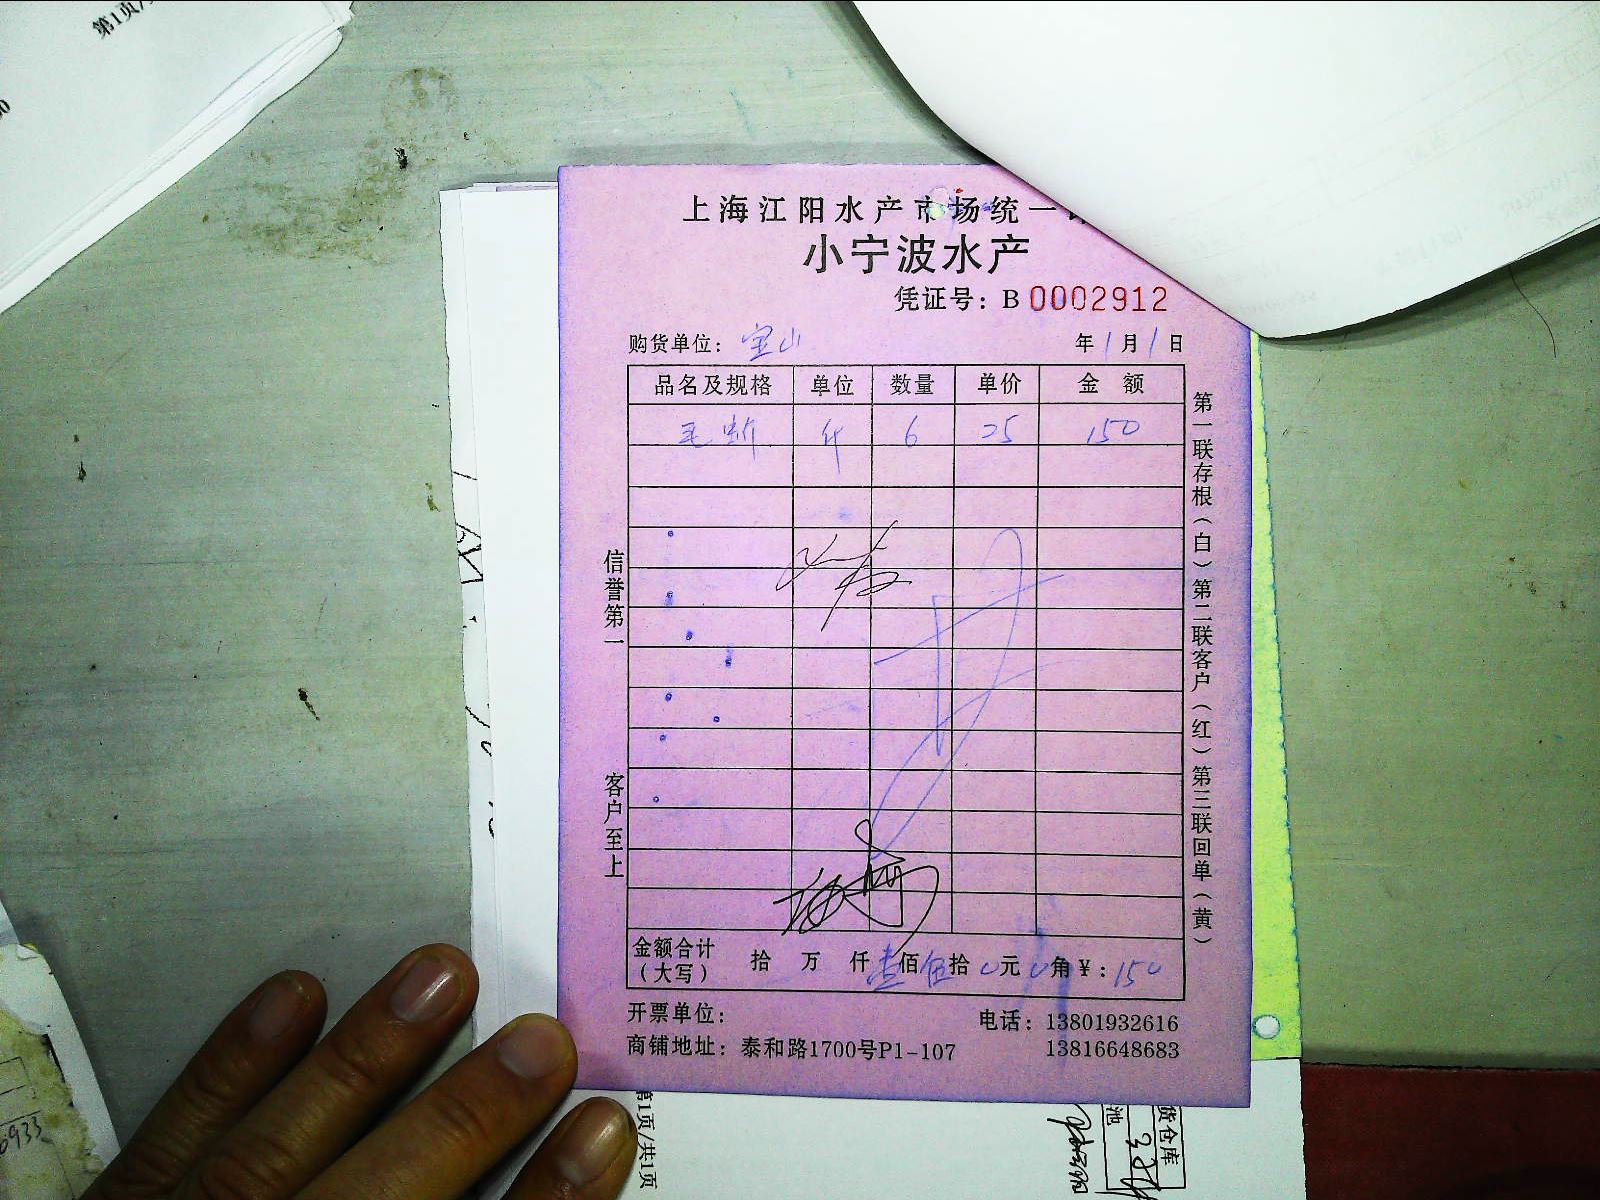 第1页/
上海江阳水产市场统一
小宁波水产
凭证号：B 0002912
购货单位：宝山 年1月1日
品名及规格 单位 数量 单价 金额
毛蚶 斤 6 25 150
信誉第一
客户至上
第一联存根（白）第二联客户（红）第三联回单（黄）
金额合计（大写） 拾 万 仟壹佰伍拾0元0角￥：150
开票单位： 电话：13801932616
商铺地址：泰和路1700号P1-107 13816648683
第1页/共1页
货仓库
池
6933